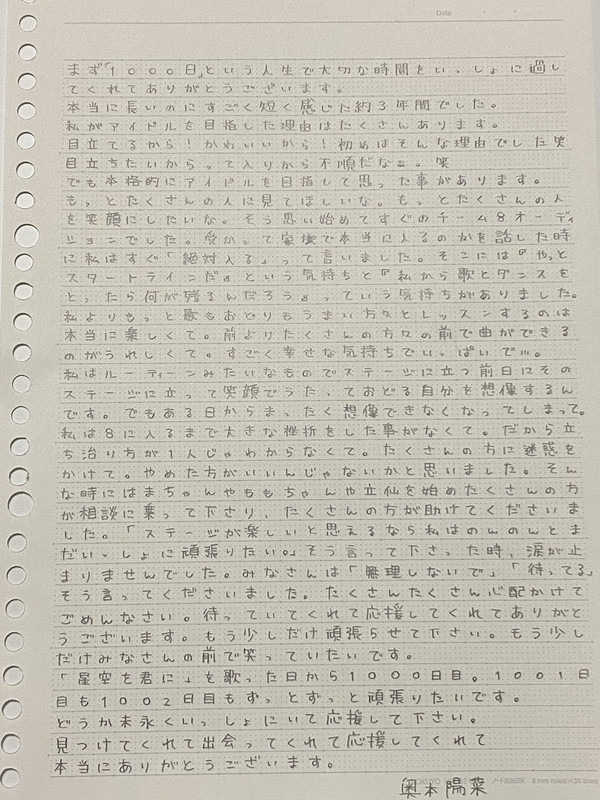 Date
まず「1000日」という人生で大切な時間をいっしょに過し
てくれてありがとうございます。
本当に長いのにすごく短く感じた約3年間でした。
私がアイドルを目指した理由はたくさんあります。
目立てるから!かわいいから!初めはそんな理由でした笑
目立ちたいからって入りから不順だなぁ。笑
でも本格的にアイドルを目指して思った事があります。
もっとたくさんの人に見てほしいな。もっとたくさんの人
を笑顔にしたいな。そう思い始めてすぐのチーム8オーディ
ションでした。受かって家族で本当に入るのかを話した時
に私はすぐ「絶対入る」って言いました。そこには『やっと
スタートラインだ』という気持ちと『私から歌とダンスを
とったら何が残るんだろう』っていう気持ちがありました。
私よりもっと歌もおどりもうまい方々とレッスンするのは
本当に楽しくて。前よりたくさんの方々の前で曲ができる
のがうれしくて。すごく幸せな気持ちでいっぱいで…。
私はルーティーンみたいなものでステージに立つ前日にその
ステージに立って笑顔でうたっておどる自分を想像するん
です。でもある日からまったく想像できなくなってしまって。
私は8に入るまで大きな挫折をした事がなくて。だから立
ち治り方が1人じゃわからなくて。たくさんの方に迷惑を
かけて。やめた方がいいんじゃないかと思いました。そん
な時にはまちゃんやももちゃんや立仙を始めたくさんの方
が相談に乗って下さり、たくさんの方が助けてくださいま
した。「ステージが楽しいと思えるなら私はのんのんとま
だいっしょに頑張りたい。」そう言って下さった時、涙が止
まりませんでした。みなさんは「無理しないで」「待ってる」
そう言ってくださいました。たくさんたくさん心配かけて
ごめんなさい。待っていてくれて応援してくれてありがと
うございます。もう少しだけ頑張らせて下さい。もう少し
だけみなさんの前で笑っていたいです。
「星空を君に」を歌った日から1000日目。1001日
目も1002日目もずっとずっと頑張りたいです。
どうか末永くいっしょにいて応援して下さい。
見つけてくれて出会ってくれて応援してくれて
本当にありがとうございます。
奥本陽菜